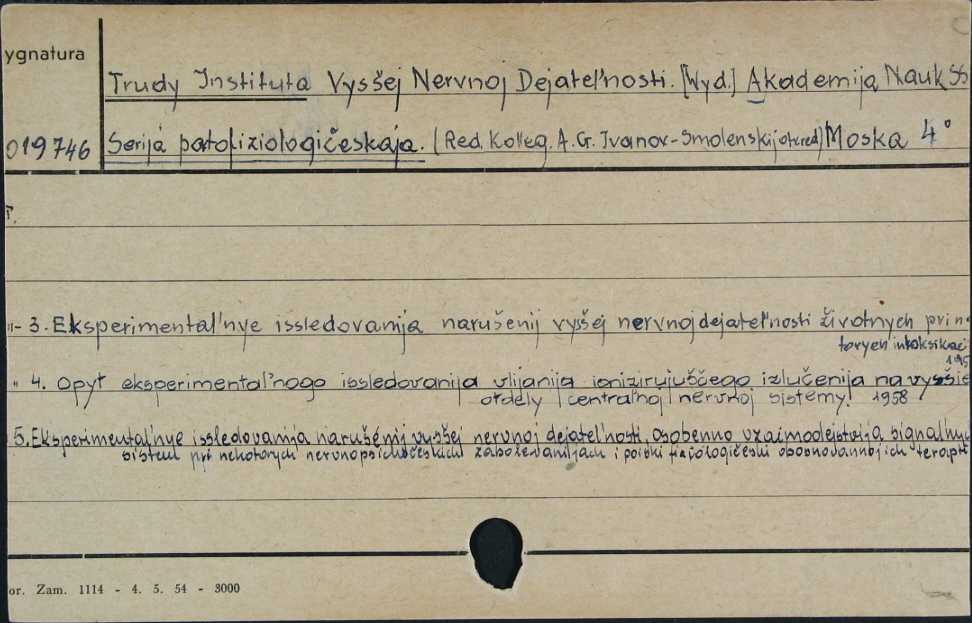 ygnatura
Trudy Instituta Vysšej Nervnoj Dejatel'nosti. [Wyd.] Akademija Nauk SS
019746
Serija patofiziologičeskaja. (Red. Kolleg. A. G. Ivanov-Smolenskij otv. red) Moska 4°
T.
"- 3. Eksperimental'nye issledovanija narušenij vysšej nervnoj dejatel'nosti životnych pri ne
toryeh intoksikac
195
" 4. Opyt eksperimental'nogo issledovanija vlijanija ionizirujuščego izlučenija na vysšie
otdely central'noj nervnoj sistemy. 1958
5. Eksperimental'nye issledovanija narušenij vysšej nervnoj dejatel'nosti, osobenno vzaimodejstvija signal'nyc
sistem pri nekotorych nervnopsichičeskich zabolevanijach i poiski patologičeski obosnovannoj ich terapii
or. Zam. 1114 - 4. 5. 54 - 3000